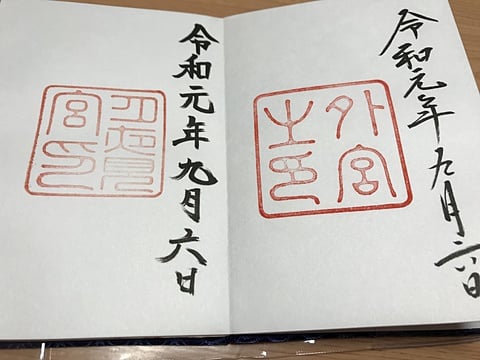 令和元年九月六日
外宮
之印
令和元年九月六日
月讀
宮印